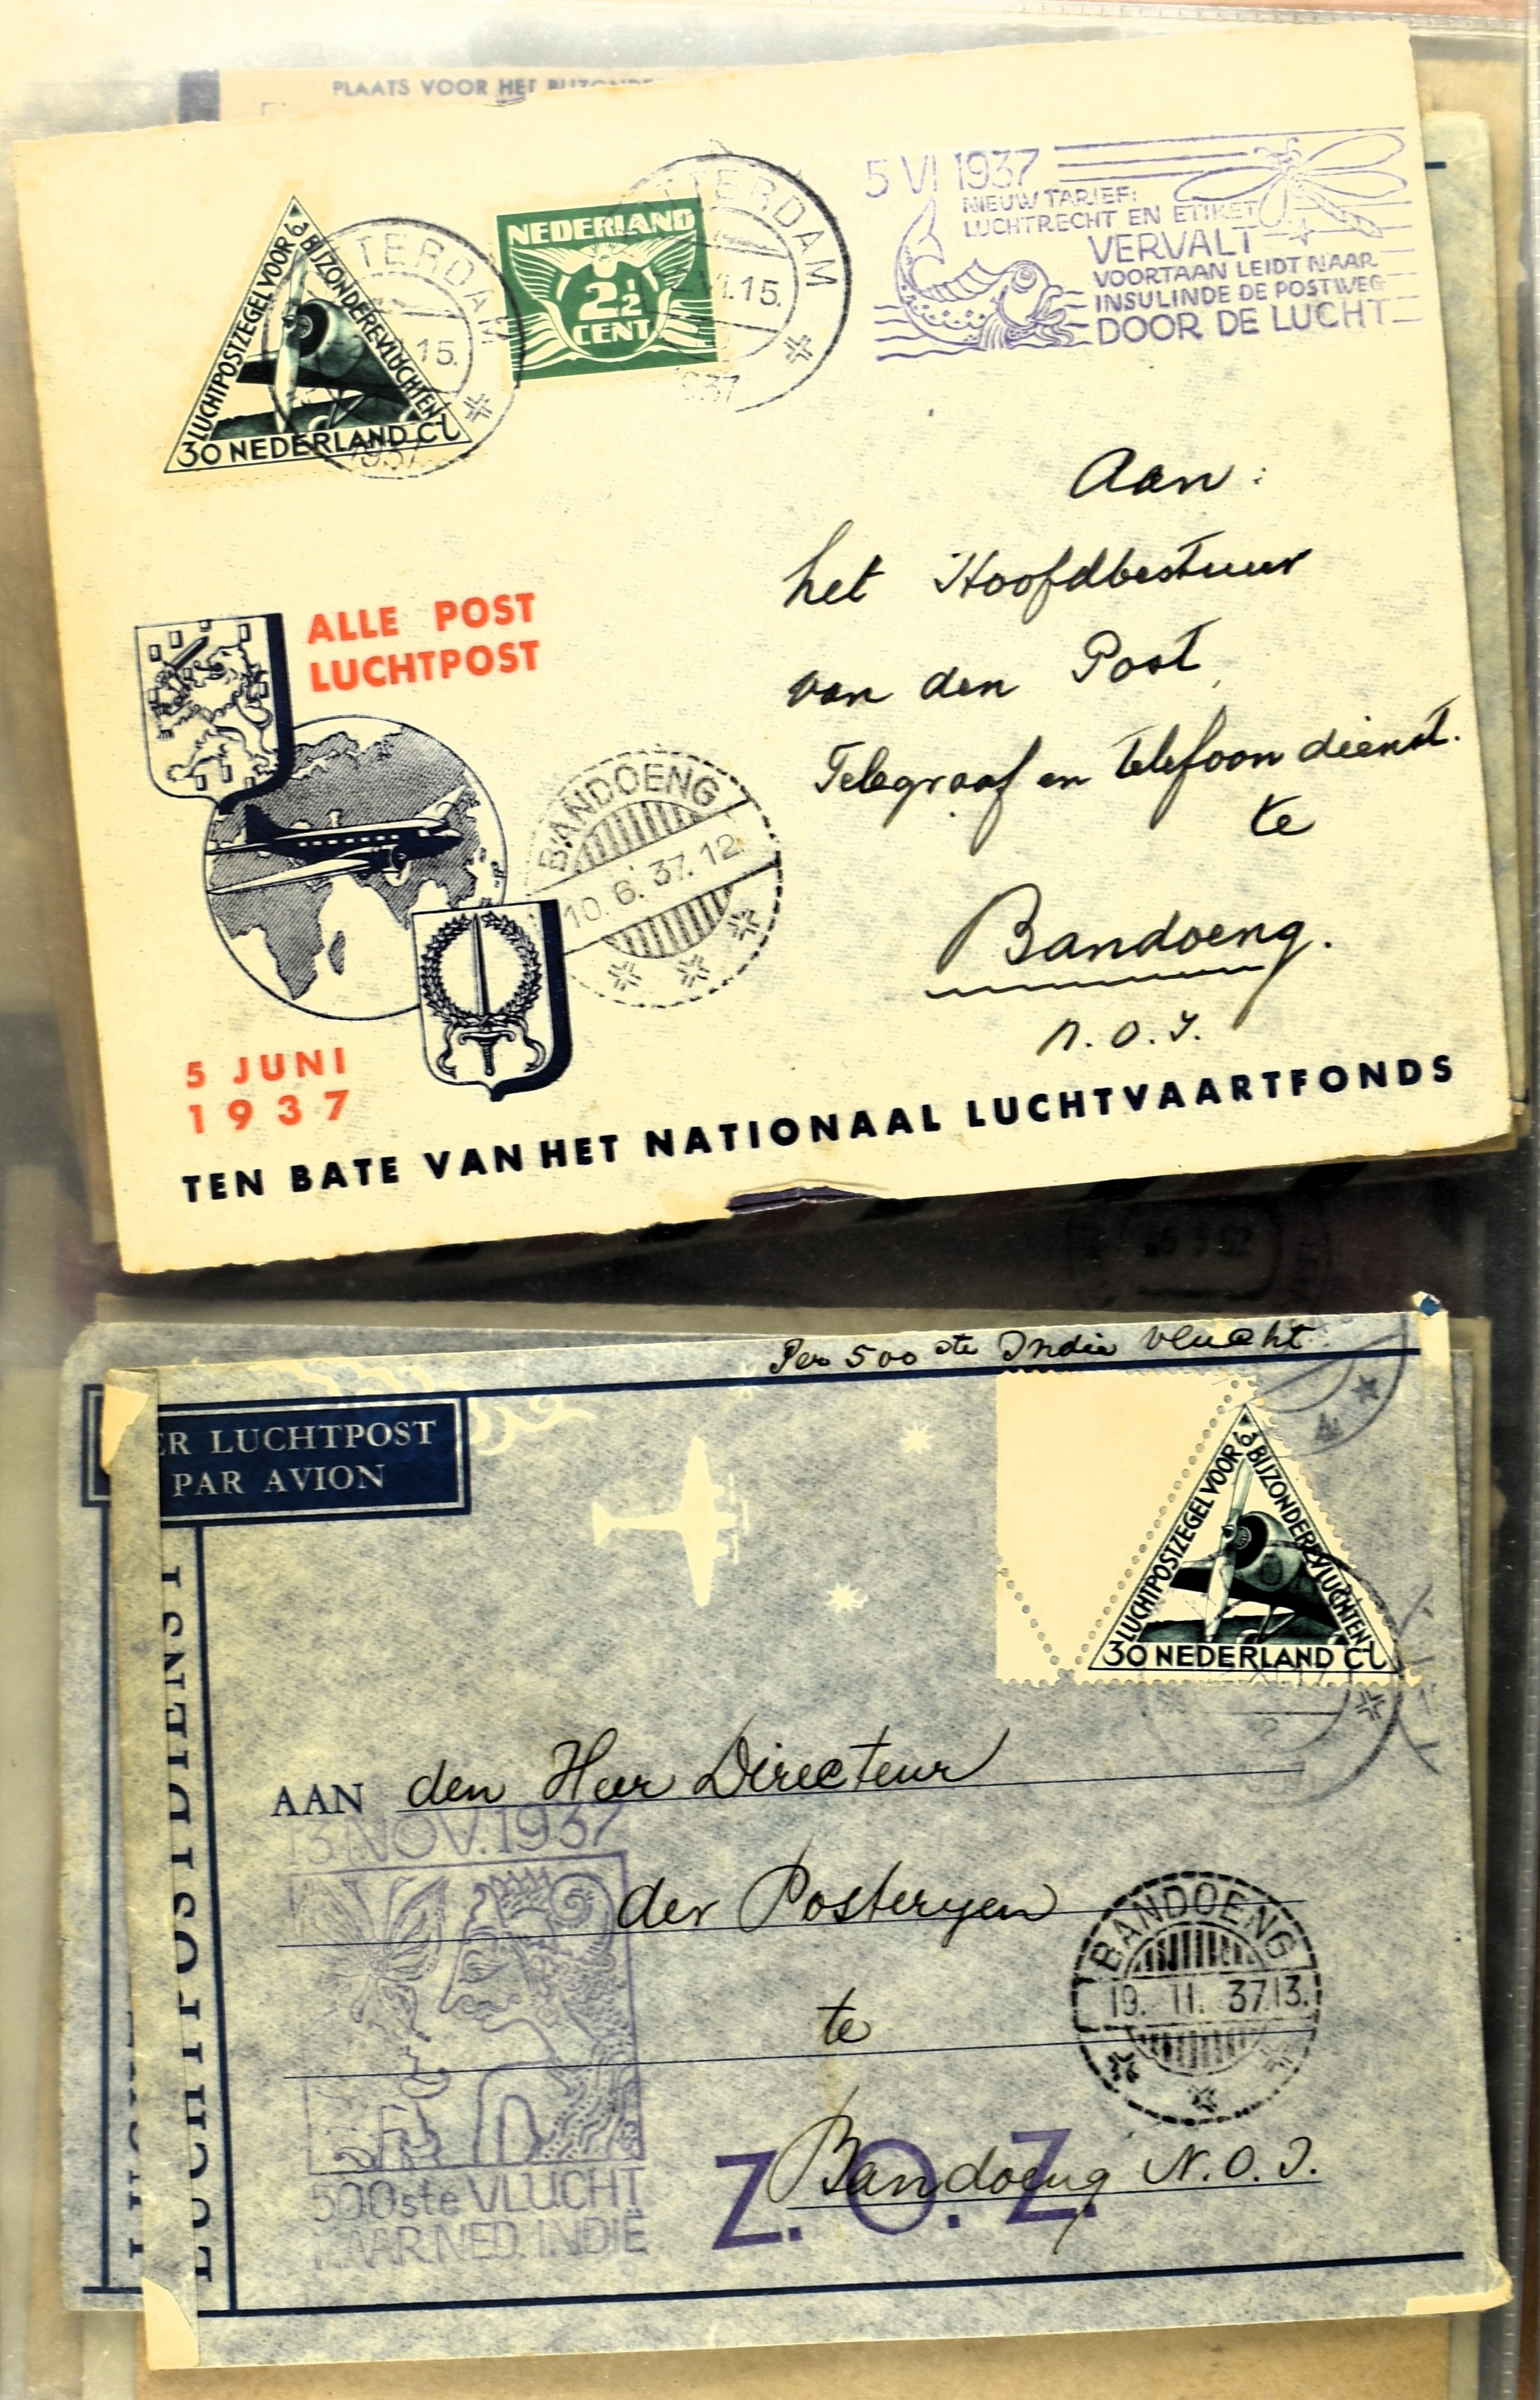 PLAATS VOOR HET BIJZONDE
5 VI 1937
NIEUW TARIEF:
LUCHTRECHT EN ETIKET
VERVALT
VOORTAAN LEIDT NAAR
INSULINDE DE POSTWEG
DOOR DE LUCHT
LUCHTPOSTZEGEL VOOR
BIJZONDERE VLUCHTEN
30 NEDERLAND CT
TTERDAM
15.
1937
NEDERLAND
2½
CENT
TTERDAM
VI.15.
1937
Aan:
het Hoofdbestuur
van den Post,
Telegraaf en telefoon dienst.
te
Bandoeng.
N.O.I.
ALLE POST
LUCHTPOST
BANDOENG
10.6.37.12
5 JUNI
1937
TEN BATE VAN HET NATIONAAL LUCHTVAARTFONDS
Per 500ste Indie vlucht.
ER LUCHTPOST
PAR AVION
LUCHTPOSTDIENST
LUCHTPOSTZEGEL VOOR
BIJZONDERE VLUCHTEN
30 NEDERLAND CT
AAN den Heer Directeur
der Posteryen
te
Bandoeng N.O.I.
13 NOV. 1937
500ste VLUCHT
NAAR NED. INDIË
BANDOENG
19. 11. 37.13.
Z.O.Z.